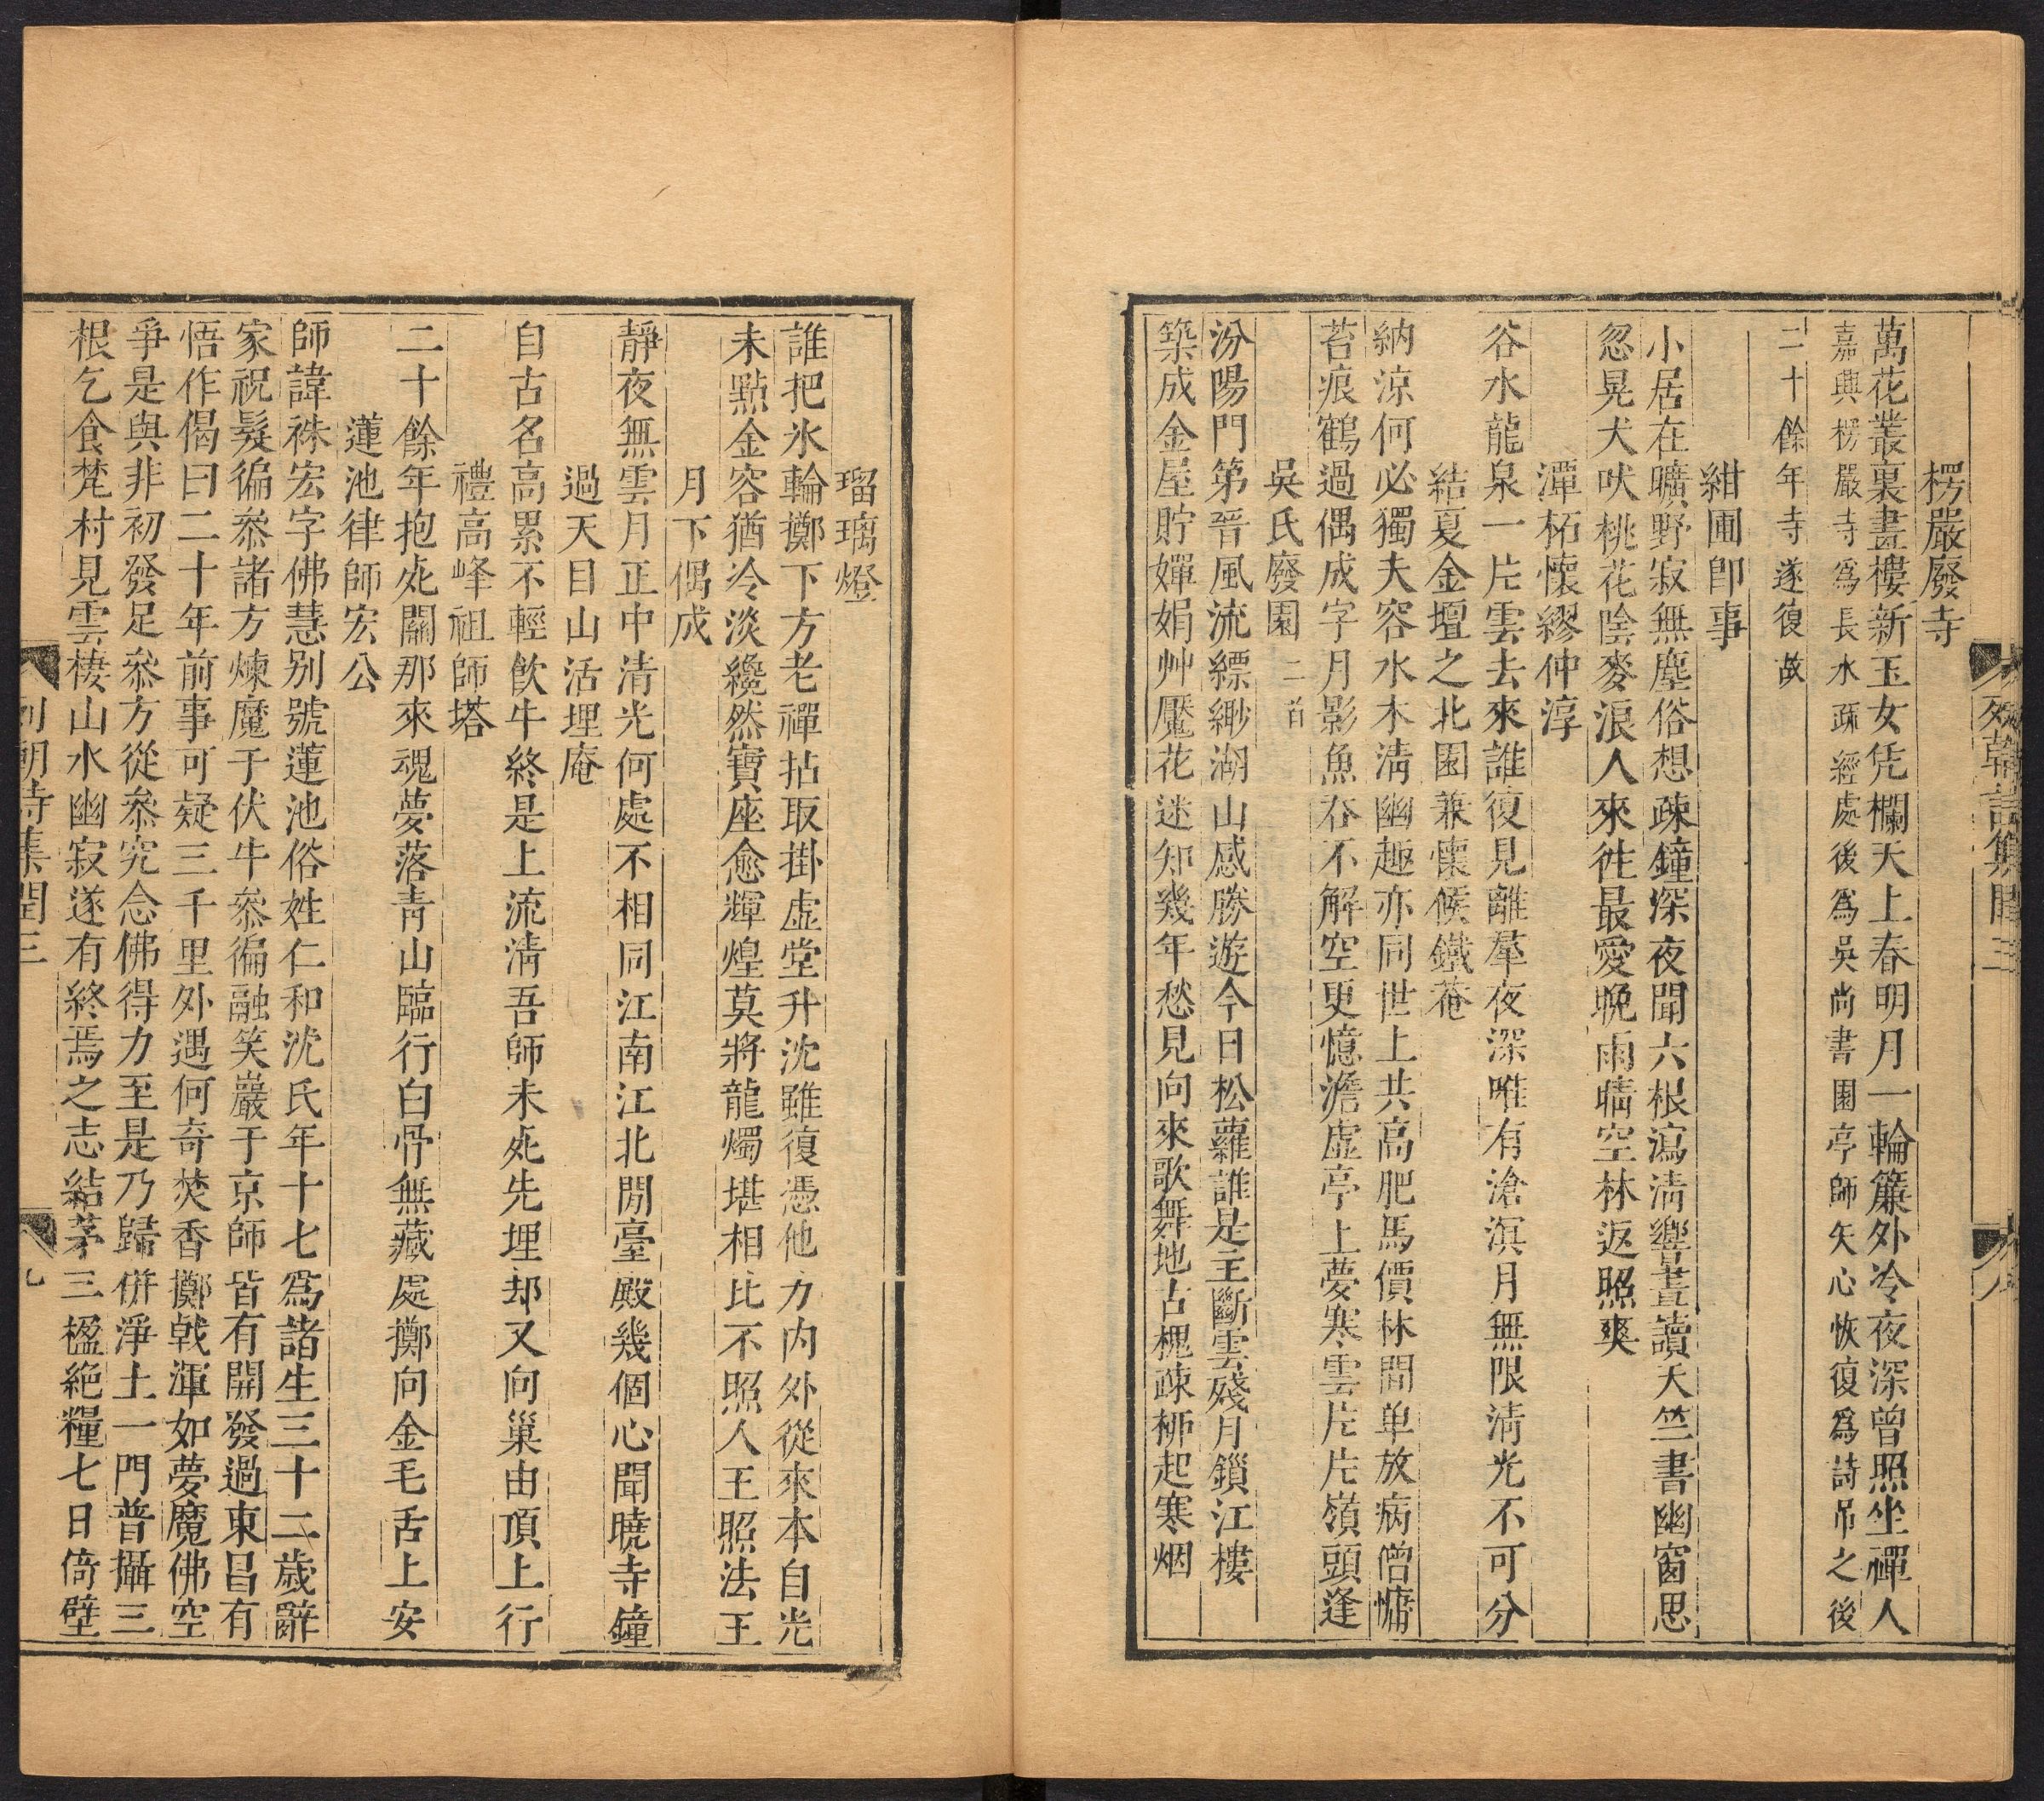 楞嚴廢寺
萬花叢裏畫樓新玉女凭欄天上春明月一輪簾外冷夜深曾照坐禪人
嘉興楞嚴寺爲長水疏經處後爲吳尚書園亭師矢心恢復爲詩吊之後
二十餘年寺遂復故
紺圃卽事
小居在曠野寂無塵俗想疎鐘深夜聞六根瀉淸響晝讀天竺書幽窗思
忽晃犬吠桃花陰麥浪人來徃最愛晚雨晴空林返照爽
潭柘懷繆仲淳
谷水龍泉一片雲去來誰復見離羣夜深唯有滄溟月無限淸光不可分
結夏金壇之北園兼懷候鐵菴
納涼何必獨夫容水木淸幽趣亦同世上共高肥馬價林間单放病僧慵
苔痕鶴過偶成字月影魚吞不解空更憶澹虛亭上夢寒雲片片嶺頭逢
吳氏廢園二首
汾陽門第晉風流縹緲湖山感勝遊今日松蘿誰是主斷雲殘月鎖江樓
築成金屋貯嬋娟艸魘花迷知幾年愁見向來歌舞地古槐疎栁起寒烟
列朝詩集閏三
八
瑠璃燈
誰把氷輪擲下方老禪拈取掛虛堂升沈雖復憑他力内外從來本自光
未點金容猶冷淡纔然寶座愈輝煌莫將龍燭堪相比不照人王照法王
月下偶成
靜夜無雲月正中清光何處不相同江南江北閒臺殿幾個心聞曉寺鐘
過天目山活埋庵
自古名高累不輕飲牛終是上流淸吾師未死先埋却又向巢由頂上行
禮高峰祖師塔
二十餘年抱死關那來魂夢落青山臨行白骨無藏處擲向金毛舌上安
蓮池律師宏公
師諱袾宏字佛慧别號蓮池俗姓仁和沈氏年十七爲諸生三十二歲辭
家祝髮徧叅諸方煉魔于伏牛叅徧融笑巖于京師皆有開發過東昌有
悟作偈曰二十年前事可疑三千里外遇何奇焚香擲戟渾如夢魔佛空
爭是與非初發足叅方從叅究念佛得力至是乃歸併淨土一門普攝三
根乞食梵村見雲棲山水幽寂遂有終焉之志結茅三楹絶糧七日倚壁
列朝詩集閏三
九